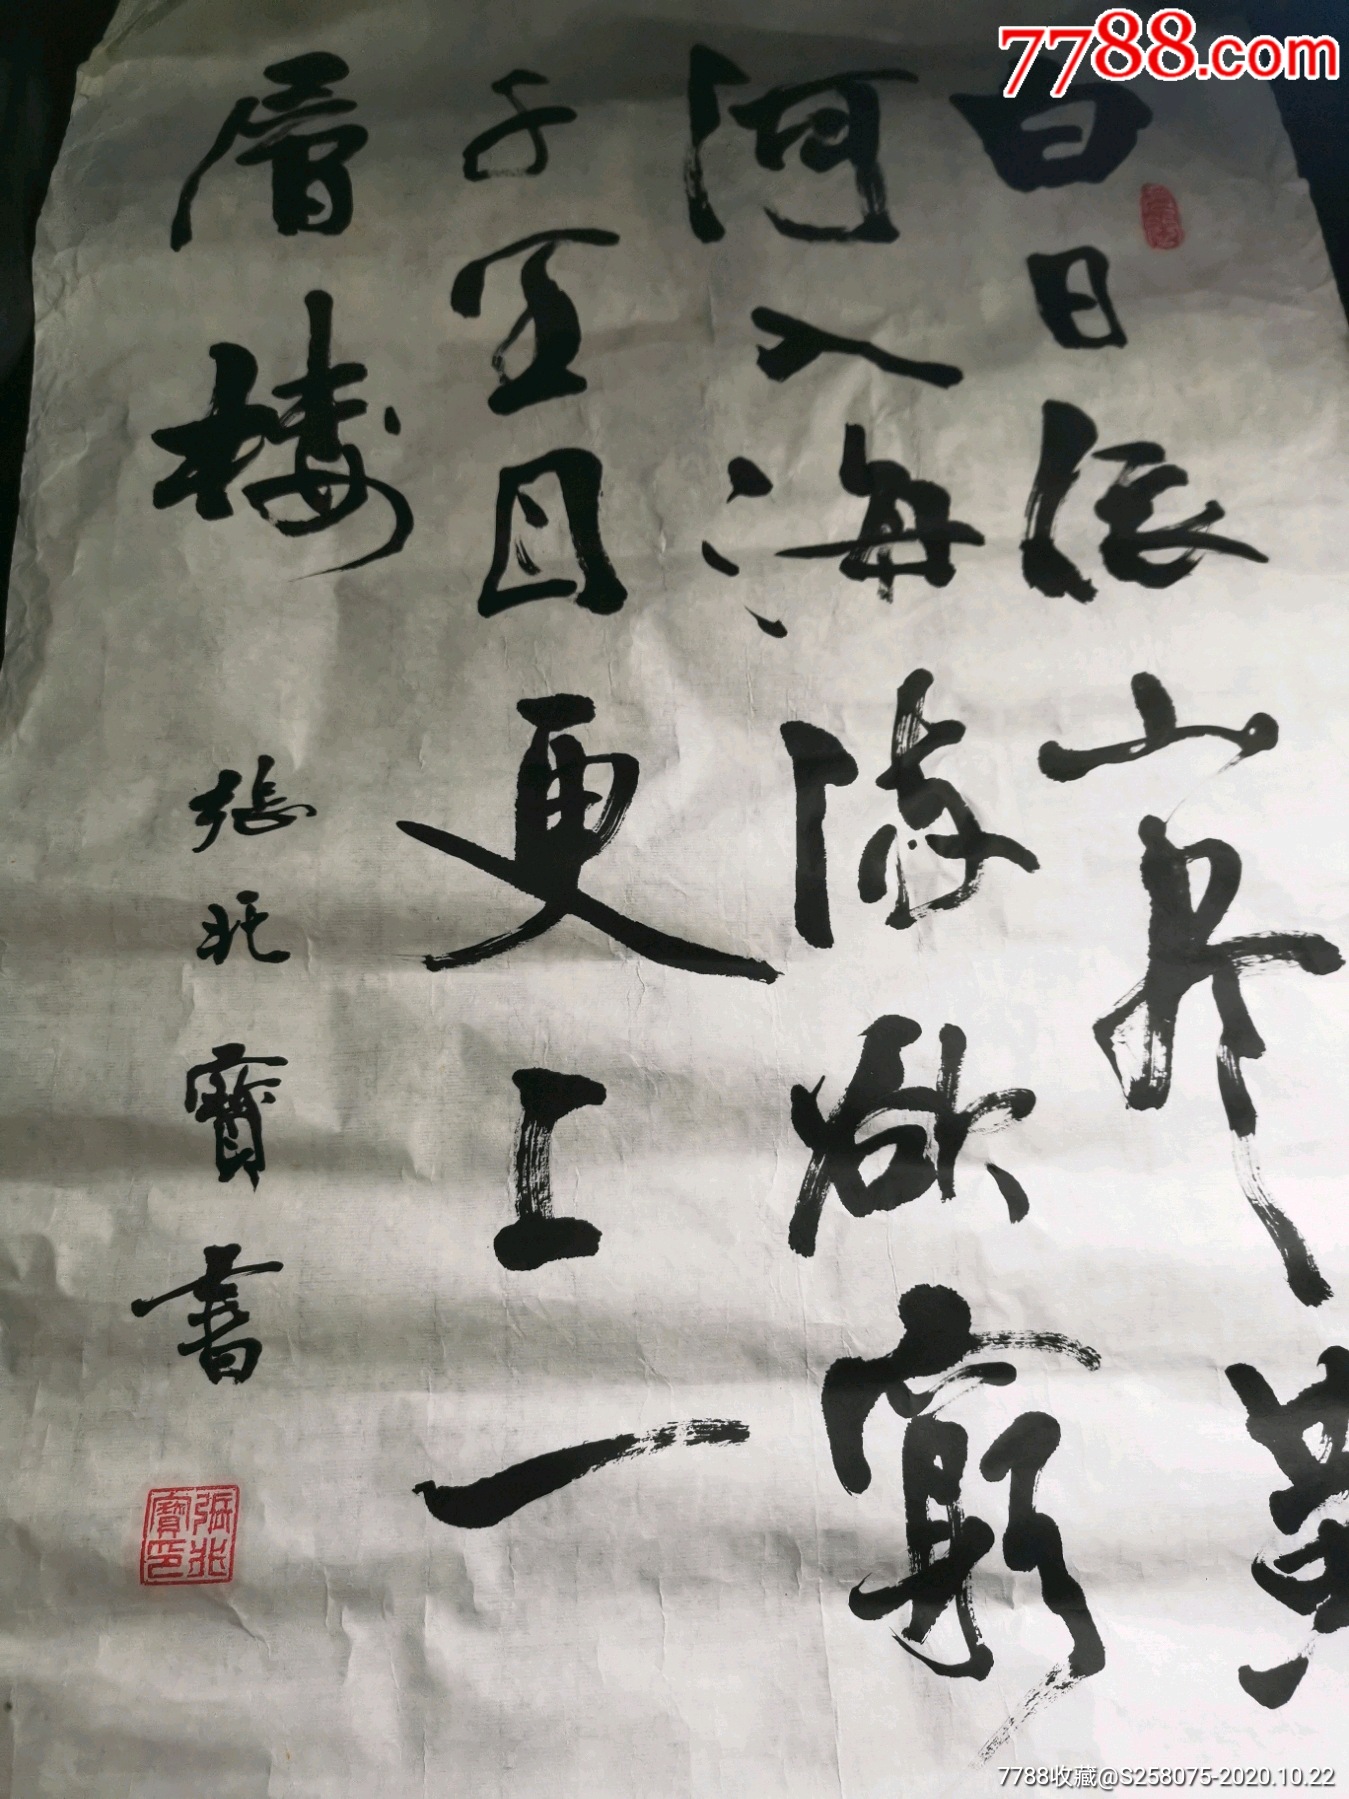 7788.com
白日依山尽黄
河入海流欲窮
千里目更上一
層樓
張 寶書
7788收藏@S258075-2020.10.22